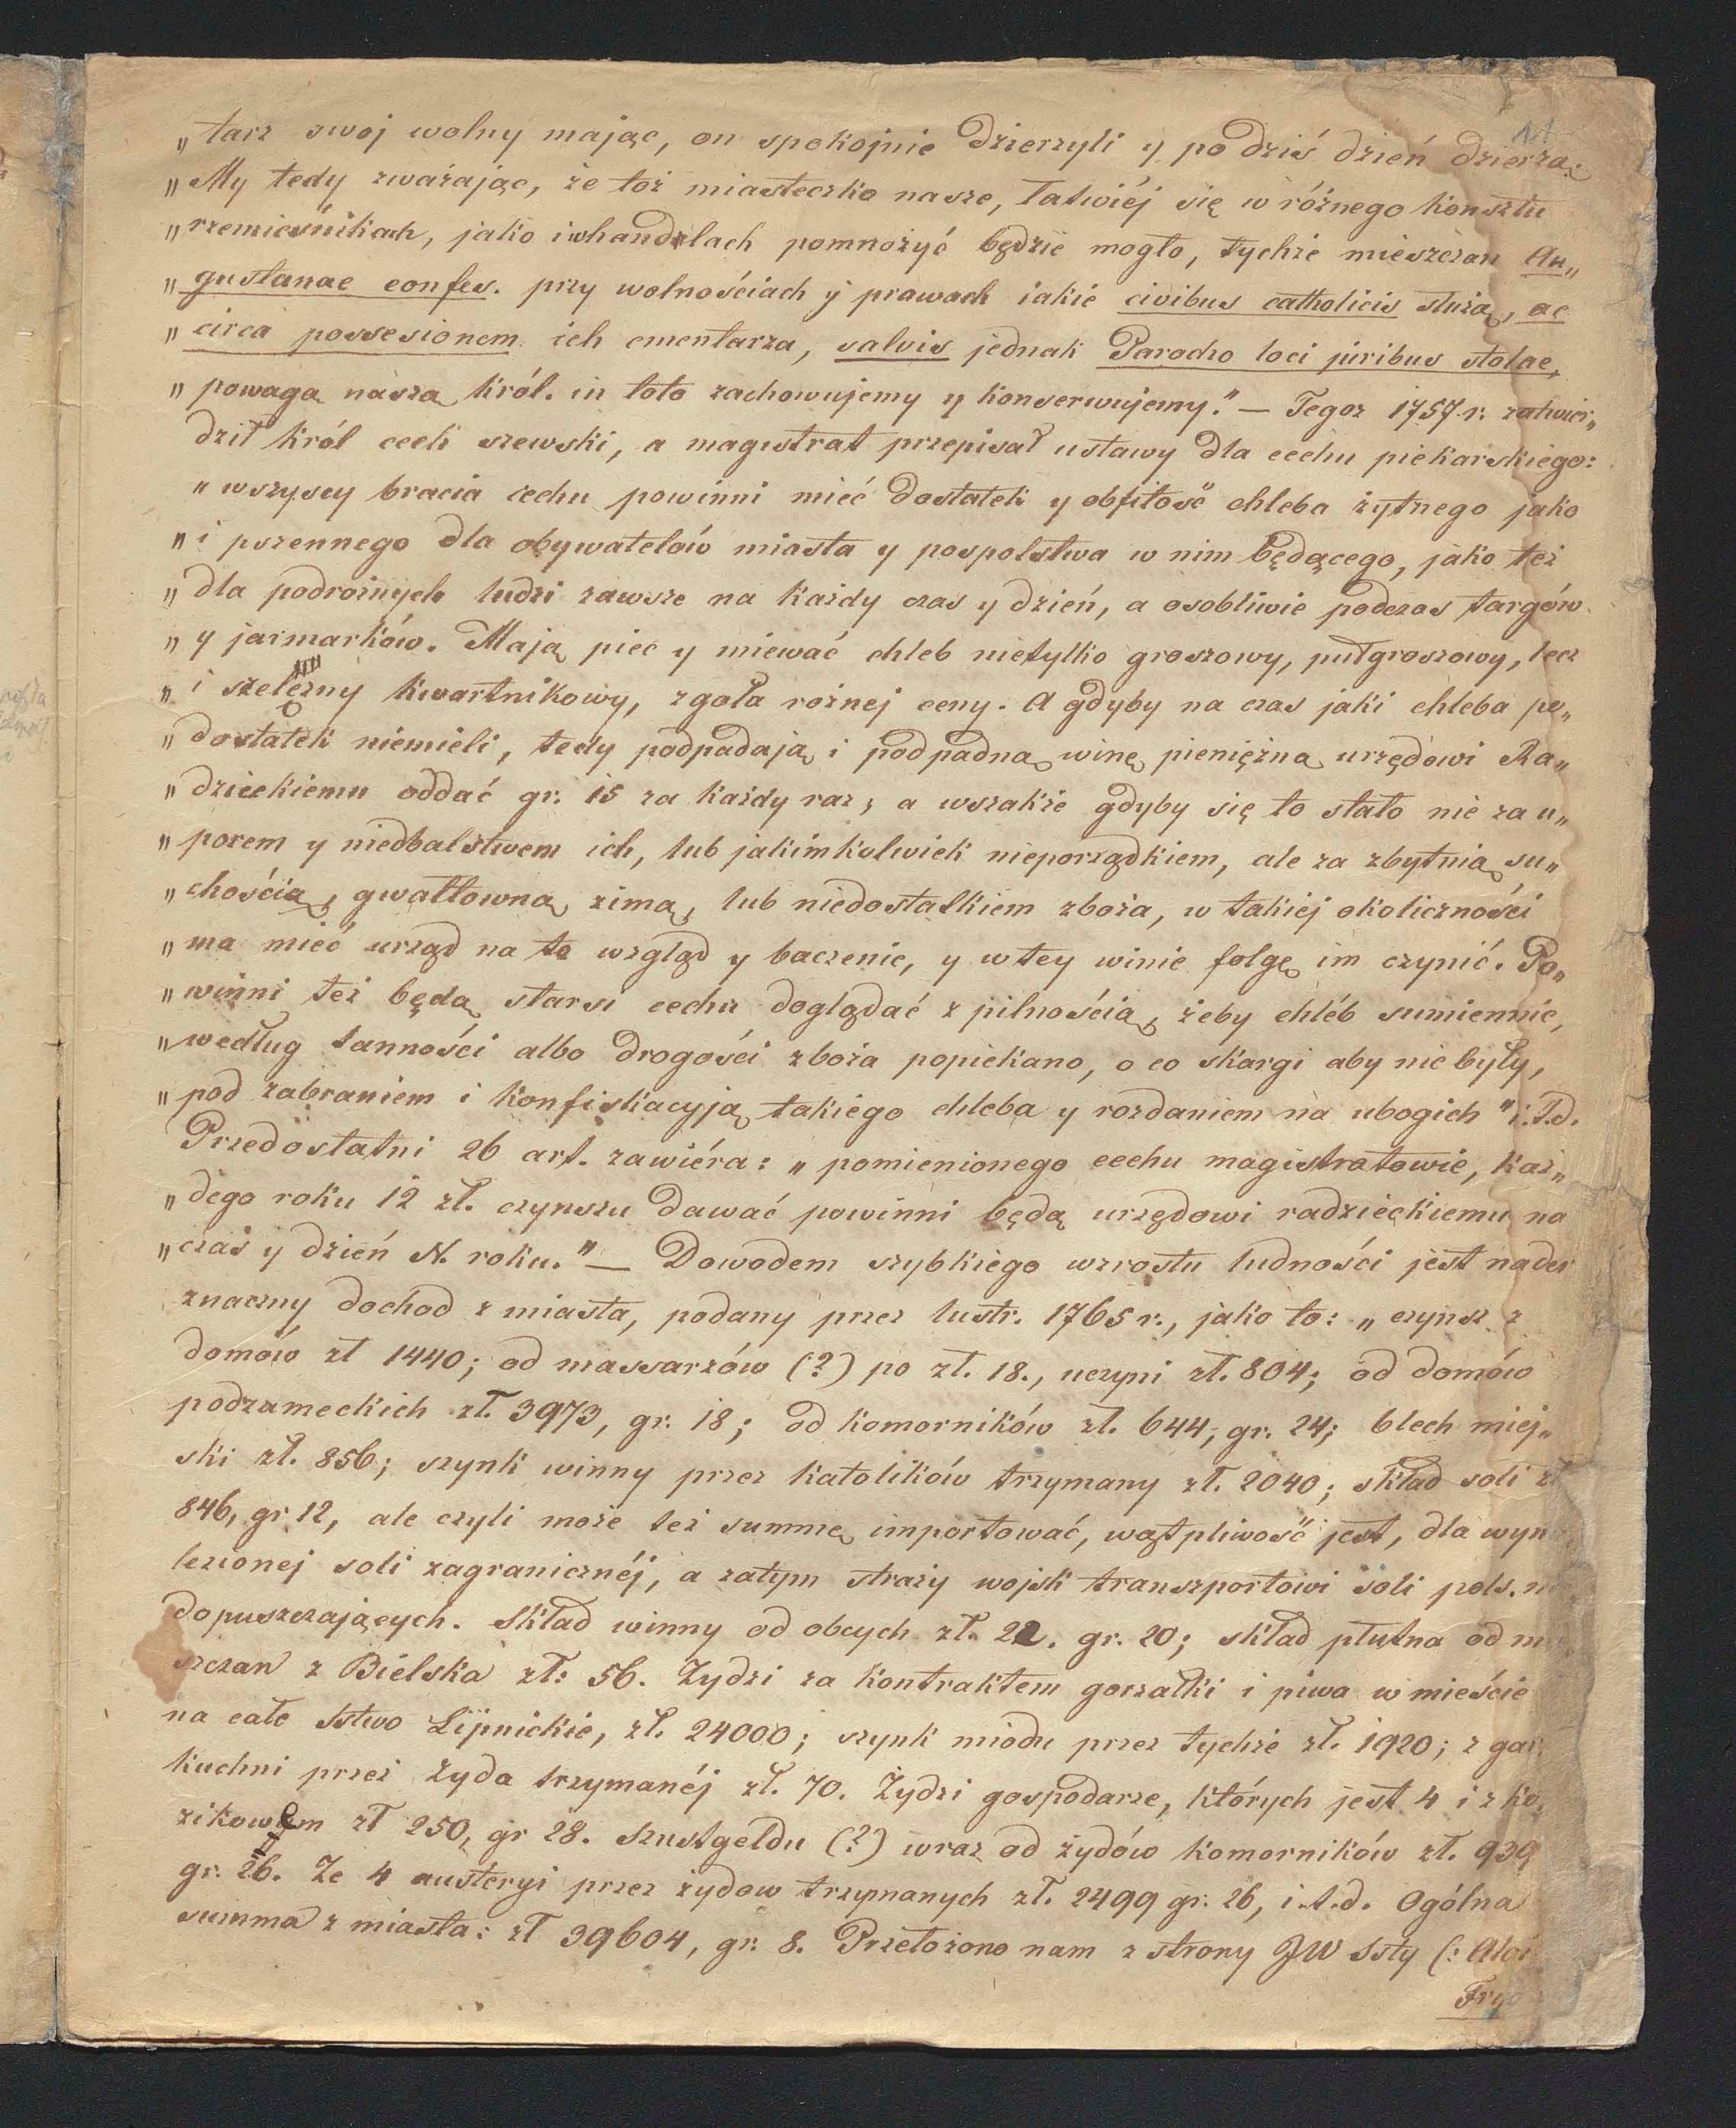 11
„tarz swoj wolny mając, on spokojnie dzierzyli y po dziś dzień dzierżą:
„My tedy zważając, że toż miasteczko nasze, łatwiéj się w różnego konsztu
„rzemieśnikach, jako i w handelach pomnożyć będzie mogło, tychże mieszczan Au„
„gustanae confes. przy wolnościach y prawach iakie civibus catholicis służą, ac
„circa possesionem ich cmentarza, salvis jednak Parocho loci juribus stolae,
„powagą naszą król. in toto zachowujemy y konserwujemy." — Tegoż 1757 r. zatwier„
dził król cech szewski, a magistrat przepisał ustawy dla cechu piekarskiego:
„wszyscy bracia cechu powinni mieć dostatek y obfitość chleba żytnego jako
„i pszennego dla obywatelów miasta y pospolstwa w nim będącego, jako też
„dla podrożnych ludzi zawsze na każdy czas y dzień, a osobliwie podczas targów
„y jarmarków. Mają piec y miewać chleb nietylko groszowy, pułgroszowy, lecz
„i szelężny kwartnikowy, zgoła rożnej ceny. A gdyby na czas jaki chleba po„
„dostatek niemieli, tedy podpadają i podpadną winę pieniężną urzędowi Ra„
„dzieckiemu oddać gr. 15 za każdy raz, a wszakże gdyby się to stało nie za u„
„porem y niedbalstwem ich, lub jakimkolwiek nieporządkiem, ale za zbytnią su„
„chością, gwałtowną zimą, lub niedostatkiem zboża, w takiej okoliczności
„ma mieć urząd na to wzgląd y baczenie, y w tey winie folgę im czynić. Po„
„winni też będą starsi cechu doglądać z pilnością, żeby chléb sumiennie,
„według tanności albo drogości zboża popiekano, o co skargi aby nie były,
„pod zabraniem i konfiskacyją takiego chleba y rozdaniem na ubogich" i.t.d.
Przedostatni 26 art. zawiéra: „pomienionego cechu magistratowie, każ„
„dego roku 12 zł. czynszu dawać powinni będą urzędowi radzieckiemu na
„czas y dzień N. roku." — Dowodem szybkiego wzrostu ludności jest nader
znaczny dochod z miasta, podany przez lustr. 1765 r., jako to: „czynsz z
domów zł 1440; od massarzów (?) po zł. 18., uczyni zł. 804; od domów
podzameckich zł. 3973, gr. 18; od komorników zł. 644, gr. 24; blech miej„
ski zł. 856; szynk winny przez katolików trzymany zł. 2040; skład soli zł
846, gr 12, ale czyli może też summę importować, wątpliwość jest, dla wyn
lezionej soli zagranicznéj, a zatym straży wojsk transzportowi soli pols.
dopuszczających. Skład winny od obcych zł. 22. gr. 20; skład płutna od
szczan z Bielska zł: 56. Żydzi za kontraktem gorzałki i piwa w mieście
na całe Sstwo Lipnickie, zł. 24000; szynk miodu przez tychże zł. 1920; z gar
kuchni przez żyda trzymanéj zł. 70. Żydzi gospodarze, których jest 4 i z ko
zikowem zł 250, gr 28. Szustgeldu (?) wraz od żydów komorników zł. 939
gr. 26. Ze 4 austeryi przez żydow trzymanych zł. 2499 gr. 26, i.t.d. Ogólna
summa z miasta: zł 39604, gr. 8. Przełożono nam z strony JW Ssty (:
Fryd